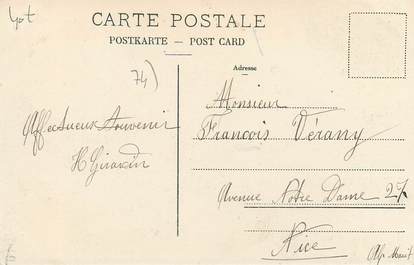 CARTE POSTALE
POSTKARTE — POST CARD
74)
Adresse
Monsieur
François Vérany
Affectueux souvenir
H Girardin
Avenue Notre Dame 27
Nice
Alp. Marit